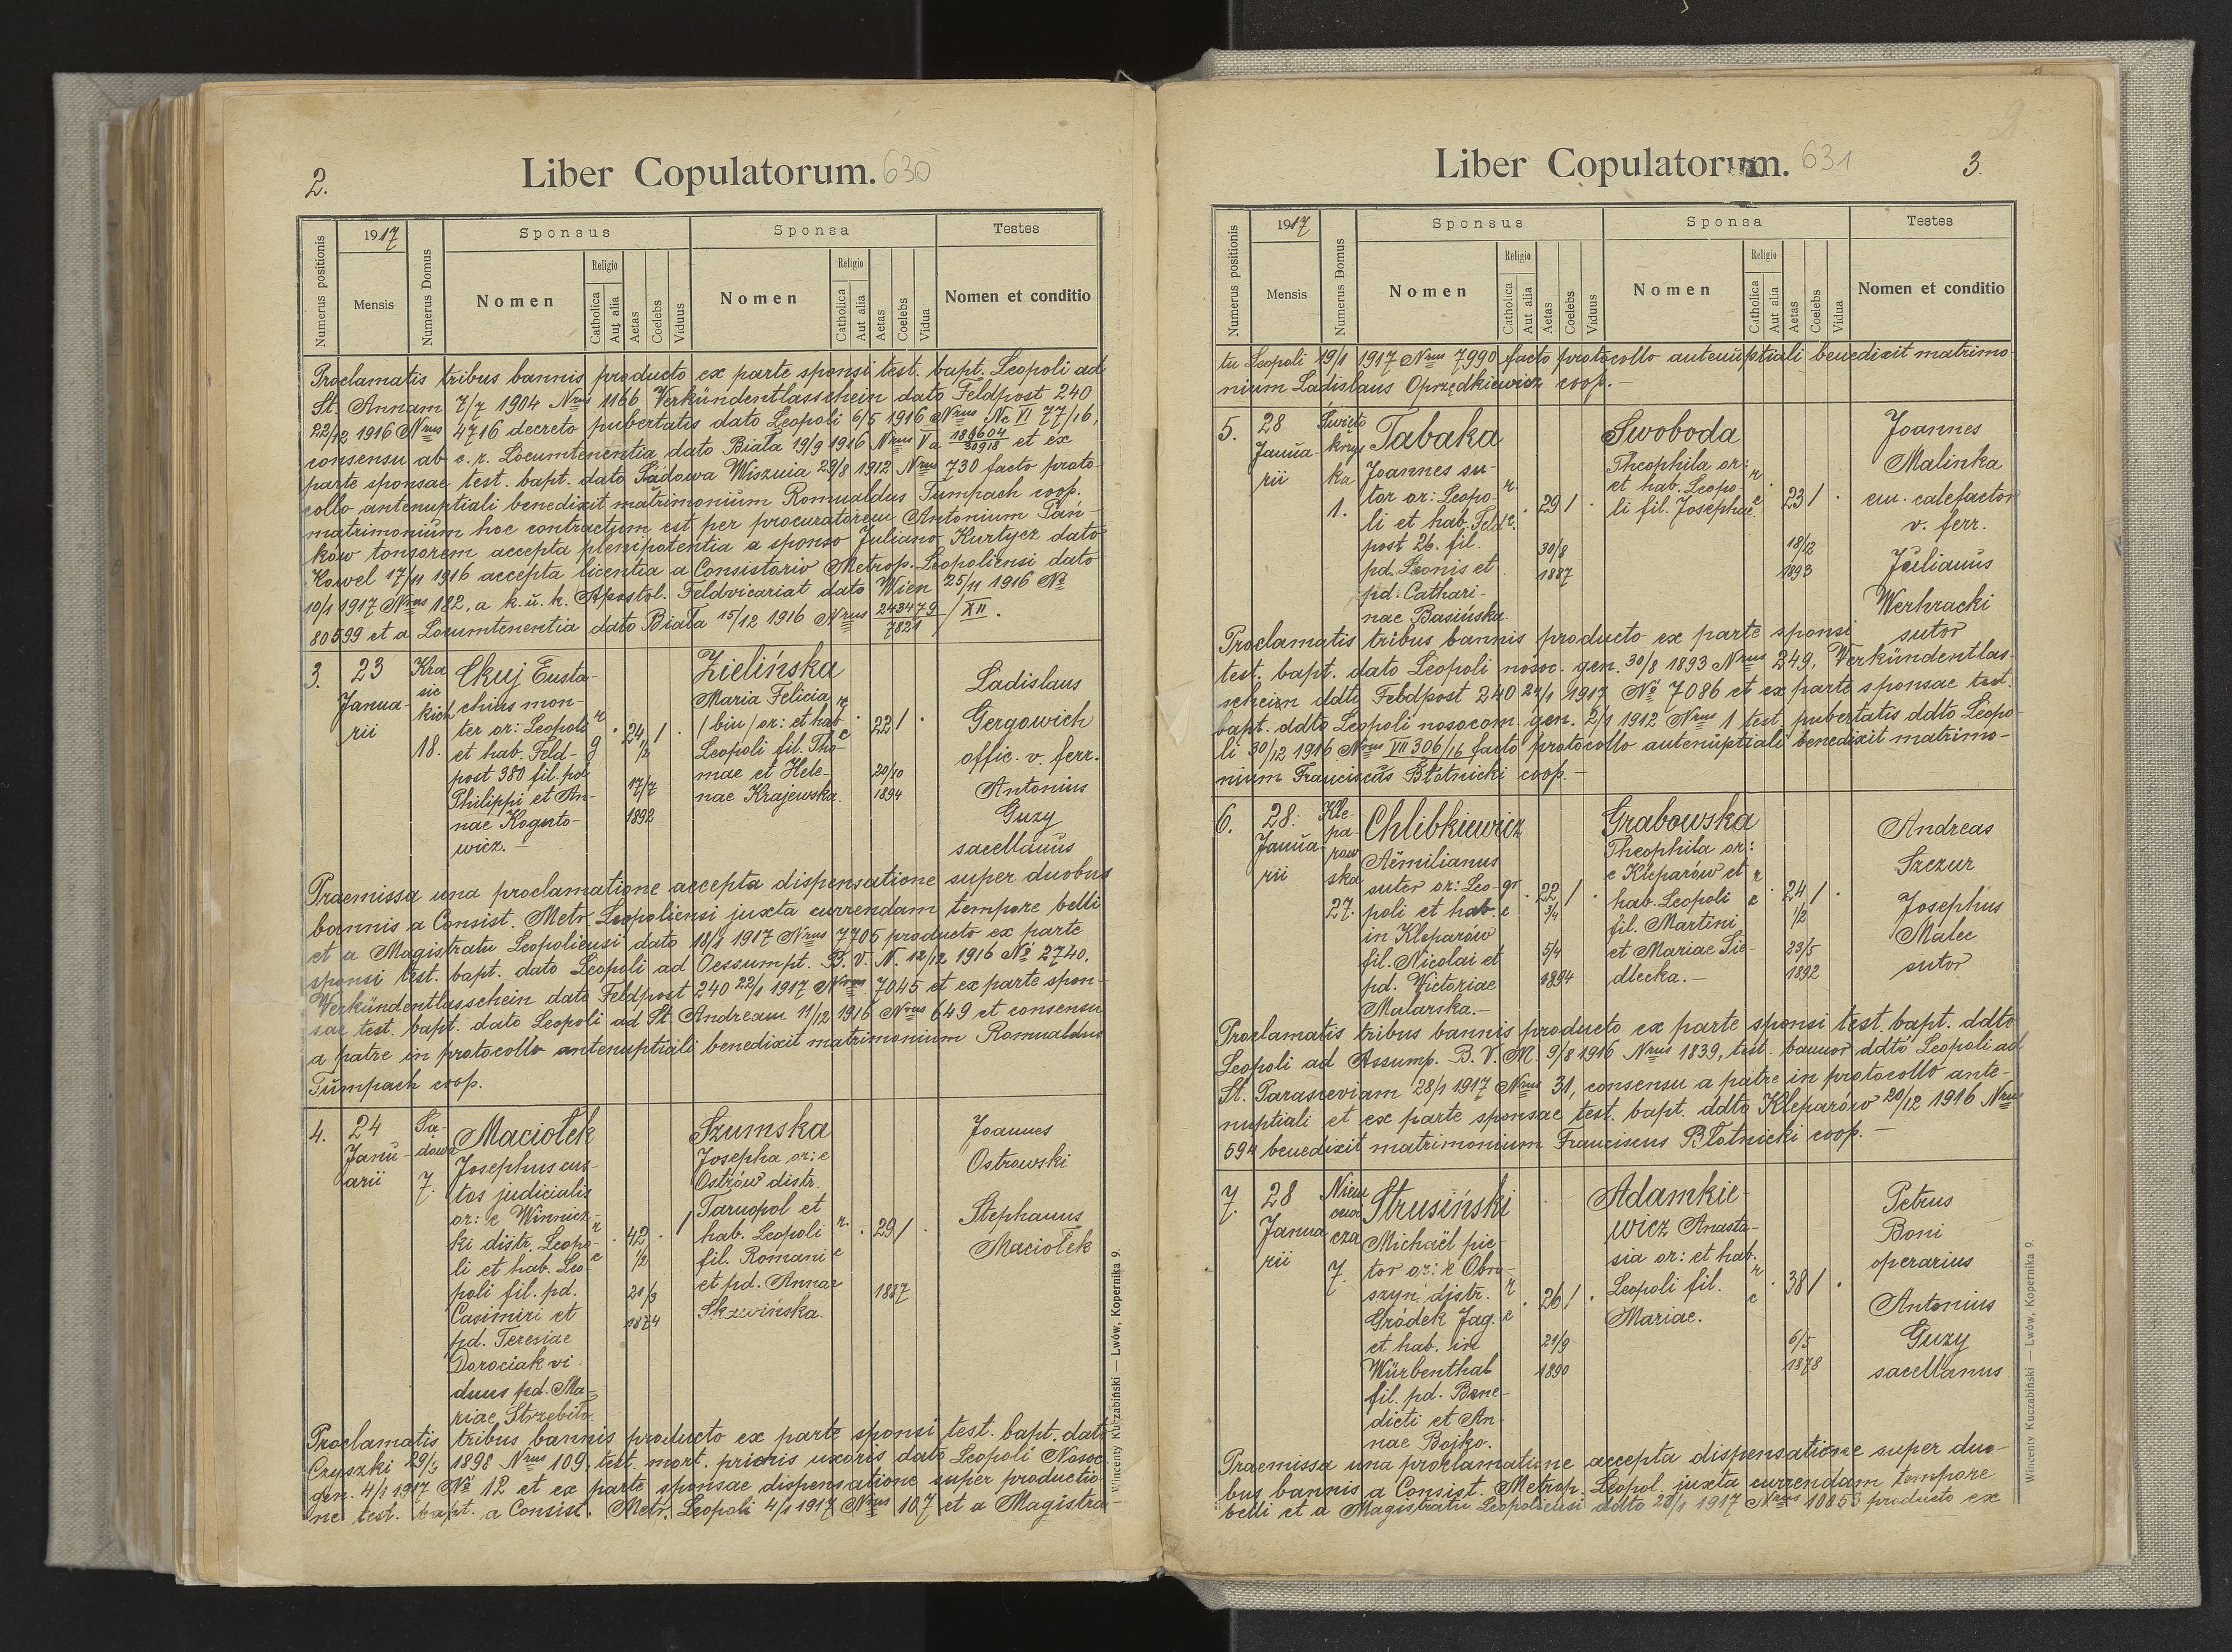 2.
Liber Copulatorum. 630
Numerus positionis
1917
Mensis
Numerus Domus
Sponsus
Nomen
Religio
Catholica
Aut alia
Aetas
Coelebs
Viduus
Sponsa
Nomen
Religio
Catholica
Aut alia
Aetas
Coelebs
Vidua
Testes
Nomen et conditio
Proclamatis tribus bannis producto ex parte sponsi test. bapt. Leopoli ad
St. Annam 7/7 1904 Nrus 1166 Verkündentlasschein dato Feldpost 240
22/12 1916 Nrus 4716 decreto pubertatis dato Leopoli 6/5 1916 Nrus Nc VI 77/16,
consensu ab c. r. Locumtenentia dato Biała 19/9 1916 Nrus Va 189604/30918 et ex
parte sponsae test. bapt. dato Sądowa Wisznia 29/8 1912 Nrus 730 facto proto-
collo antenuptiali benedixit matrimonium Romualdus Tumpach coop.
matrimonium hoc contractum est per procuratorem Antonium Pan-
ków tonsorem accepta plenipotentia a sponso Juliano Kurtycz dato
Kowel 17/11 1916 accepta licentia a Consistorio Metrop. Leopoliensi dato
10/1 1917 Nrus 182, a k. u. k. Apostol. Feldvicariat dato Wien 25/11 1916 No
80599 et a Locumtenentia dato Biała 15/12 1916 Nrus 243479/7821 / XII.
3.
23
Janua-
rii
Kra
sic
kich
18.
Ckuj Eusta-
chius mon-
ter or: Leopoli
et hab. Feld-
post 380 fil. pd.
Philippi et An-
nae Koguto-
wicz. —
r
g
24 /
1/2
17/7
1892
Zielińska
Maria Felicia
/ biu / or: et hab
Leopoli fil. Tho-
mae et Hele-
nae Krajewska.
r
c
22 /
20/10
1894
Ladislaus
Gergowich
offic. v. ferr.
Antonius
Guzy
sacellanus
Praemissa una proclamatione accepta dispensatione super duobus
bannis a Consist. Metr. Leopoliensi juxta currendam tempore belli
et a Magistratu Leopoliensi dato 18/1 1917 Nrus 7705 producto ex parte
sponsi test. bapt. dato Leopoli ad Oessumpt. B. V. N. 12/12 1916 No 2740,
Verkündentlasschein dato Feldpost 240 22/1 1917 Nrus 7045 et ex parte spon-
sae test. bapt. dato Leopoli ad St. Andream 11/12 1916 Nrus 649 et consensu
a patre in protocollo antenuptiali benedixit matrimonium Romualdus
Tumpach coop.
4.
24
Janu-
arii
Sa-
dowa
7.
Maciołek
Josephus cus-
tos judicialis
or: e Winnicz-
ki distr. Leopo-
li et hab. Leo-
poli fil. pd.
Casimiri et
pd. Teresiae
Dorociak vi-
duus pd. Ma-
riae Strzebito.
r
c
42 . /
1/2
21/3
1874
Szumska
Josepha or: e
Ostrów distr.
Tarnopol et
hab. Leopoli
fil. Romani
et pd. Annae
Skzwińska.
r.
c
29 /
1887
Joannes
Ostrowski
Stephanus
Maciołek
Proclamatis tribus bannis producto ex parte sponsi test. bapt. dato
Czyszki 29/3 1898 Nrus 109, test. mort. prioris uxoris dato Leopoli Nosoc.
gen. 4/1 1917 No 12 et ex parte sponsae dispensatione super productio-
ne test. bapt. a Consist. Metr. Leopoli 4/1 1917 Nrus 107 et a Magistra-
Wincenty Kuczabiński — Lwów, Kopernika 9.
Liber Copulatorum. 631
3.
Numerus positionis
1917
Mensis
Numerus Domus
Sponsus
Nomen
Religio
Catholica
Aut alia
Aetas
Coelebs
Viduus
Sponsa
Nomen
Religio
Catholica
Aut alia
Aetas
Coelebs
Vidua
Testes
Nomen et conditio
tu Leopoli 19/1 1917 Nrus 7990 facto protocollo antenuptiali benedixit matrimo-
nium Ladislaus Oprzędkiewicz coop. —
5.
28
Janua-
rii
Święto
krzys
ka
1.
Tabaka
Joannes su-
tor or: Leopo-
li et hab. Feld-
post 26. fil.
pd. Leonis et
pd. Cathari-
nae Basińska.
r.
c.
29 /
30/8
1887
Swoboda
Theophila or:
et hab. Leopo-
li fil. Josephae.
r
c
23 /
18/12
1893
Joannes
Malinka
em. calefactor
v. ferr.
Julianus
Werhracki
sutor
Proclamatis tribus bannis producto ex parte sponsi
test. bapt. dato Leopoli nosoc. gen. 30/8 1893 Nrus 249, Verkündentlas-
schein ddto Feldpost 240 24/1 1917 No 7086 et ex parte sponsae test.
bapt. ddto Leopoli nosocom. gen. 2/1 1912 Nrus 1 test. pubertatis ddto Leopo-
li 30/12 1916 Nrus VII 306/16 facto protocollo antenuptiali benedixit matrimo-
nium Franciscus Błotnicki coop. —
6.
28.
Janua-
rii
Kle-
pa-
row
ska
27.
Chlibkiewicz
Aemilianus
sutor or: Leo-
poli et hab.
in Kleparów
fil. Nicolai et
pd. Victoriae
Malarska. —
gr
c
22 /
3/4
5/4
1894
Grabowska
Theophila or:
e Kleparów et
hab. Leopoli
fil. Martini
et Mariae Sie-
dlecka. —
r
c
24 /
1/2
23/5
1892
Andreas
Szczur
Josephus
Malec
sutor
Proclamatis tribus bannis producto ex parte sponsi test. bapt. ddto
Leopoli ad Assump. B. V. M. 9/8 1916 Nrus 1839, test. bannor ddto Leopoli ad
St. Parasceviam 28/1 1917 Nrus 31, consensu a patre in protocollo ante-
nuptiali et ex parte sponsae test. bapt. ddto Kleparów 20/12 1916 Nrus
594 benedixit matrimonium Franciscus Błotnicki coop. —
7.
28
Janua
rii
Niem
cewi
cza
7.
Strusiński
Michaël pic-
tor or: e Obro-
szyn distr.
Gródek Jag.
et hab. in
Würbenthal
fil. pd. Bene-
dicti et An-
nae Bojko.
r
c
26 /
21/9
1890
Adamkie-
wicz Anasta-
sia or: et hab.
Leopoli fil.
Mariae.
r
c
38 /
6/5
1878
Petrus
Boni
operarius
Antonius
Guzy
sacellanus
Praemissa una proclamatione accepta dispensatione super duo-
bus bannis a Consist. Metrop. Leopol. juxta currendam tempore
belli et a Magistratu Leopoliensi ddto 28/1 1917 Nrus 11853 producto ex
Wincenty Kuczabiński — Lwów, Kopernika 9.